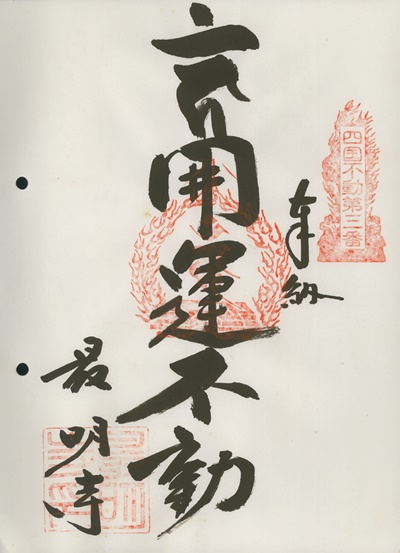 四国不動第三番
奉納
開運不動
最明寺